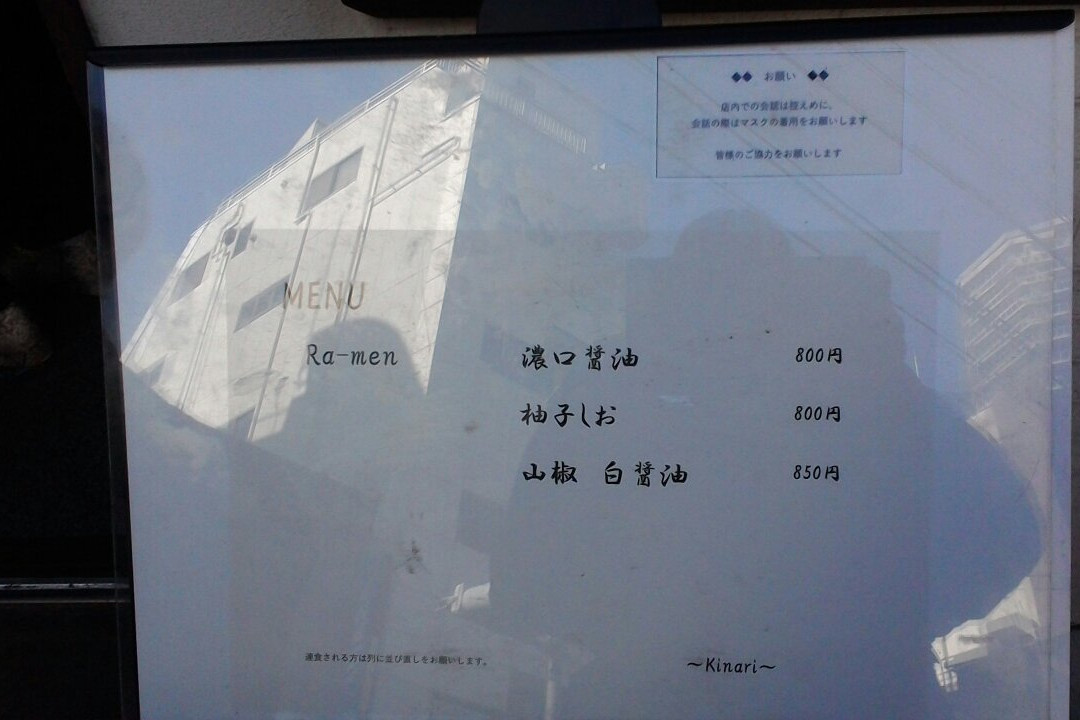 ◆◆ お願い ◆◆
店内での会話は控えめに、
会話の際はマスクの着用をお願いします
皆様のご協力をお願いします
MENU
Ra-men 濃口醤油 800円
柚子しお 800円
山椒 白醤油 850円
連食される方は列に並び直しをお願いします。
~Kinari~